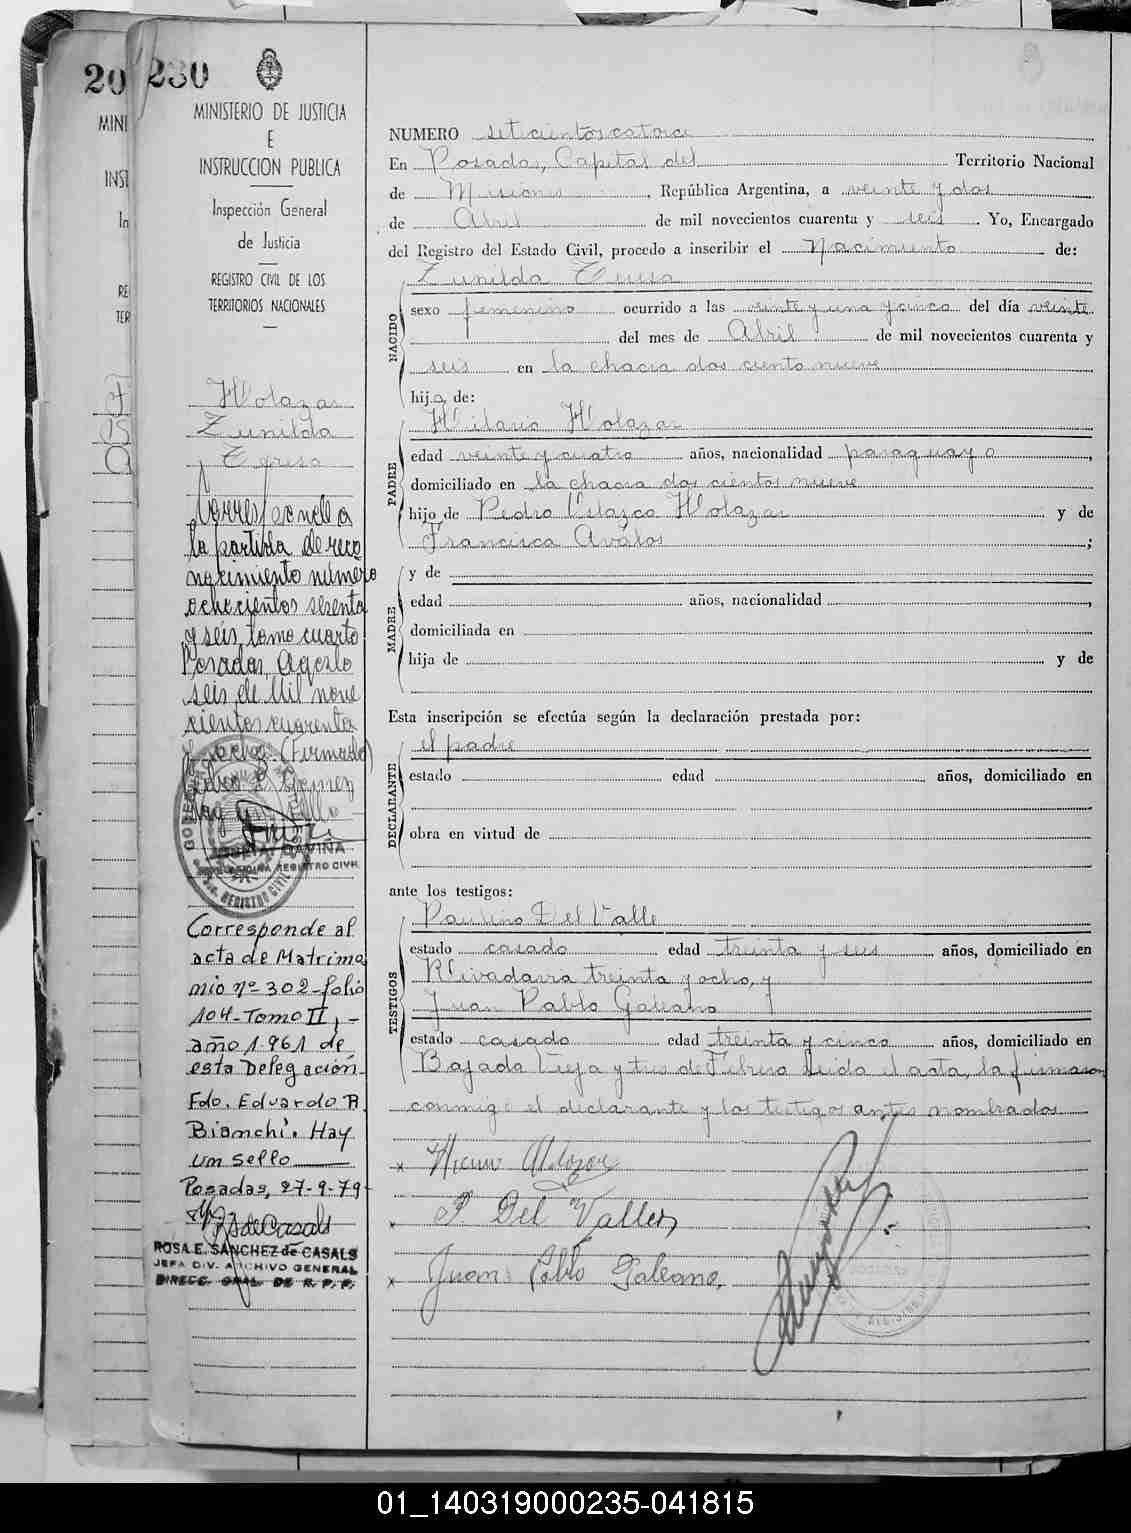 20
MINI
INST
In
RE
TER
230
MINISTERIO DE JUSTICIA
E
INSTRUCCION PUBLICA
Inspección General
de Justicia
REGISTRO CIVIL DE LOS
TERRITORIOS NACIONALES
Zunilda
Teresa
Corresponde a
la partida de reco
nocimiento número
ochocientos sesenta
y seis, tomo cuarto
Posadas, Agosto
seis de Mil nove
cientos cuarenta
y ocho. (Firmado)
Hay un sello
DAVIÑA
REGISTRO CIVIL
Corresponde al
acta de Matrimo
nio nº 302-folio
104-Tomo II,-
año 1961 de
esta Delegación
Fdo. Eduardo R.
Bianchi. Hay
un sello
Posadas, 27-9-79
ROSA E. SANCHEZ de CASALS
JEFA DIV. ARCHIVO GENERAL
DIRECC. GRAL. DE R. P. P.
NUMERO setecientos catorce
En Posadas, Capital del Territorio Nacional
de Misiones, República Argentina, a veinte y dos
de Abril de mil novecientos cuarenta y seis. Yo, Encargado
del Registro del Estado Civil, procedo a inscribir el Nacimiento de:
Zunilda Teresa
NACIDO
sexo femenino ocurrido a las veinte y una y cinco del día veinte
del mes de Abril de mil novecientos cuarenta y
seis en la chacra dos ciento nueve
hija de:
PADRE
Hilario
edad veinte y cuatro años, nacionalidad paraguayo,
domiciliado en la chacra dos cientos nueve
hijo de Pedro y de
Francisca Avalos;
MADRE
y de
edad años, nacionalidad ,
domiciliada en
hija de y de
Esta inscripción se efectúa según la declaración prestada por:
DECLARANTE
el padre
estado edad años, domiciliado en
obra en virtud de
ante los testigos:
TESTIGOS
Paulino Del Valle
estado casado edad treinta y seis años, domiciliado en
Rivadavia treinta y ocho, y
Juan Pablo Galeano
estado casado edad treinta y cinco años, domiciliado en
Bajada Vieja y tres de Febrero Leida el acta, la firmaron
conmigo el declarante y los testigos antes nombrados
P. Del Valle
Juan Pablo Galeano.
01_140319000235-041815